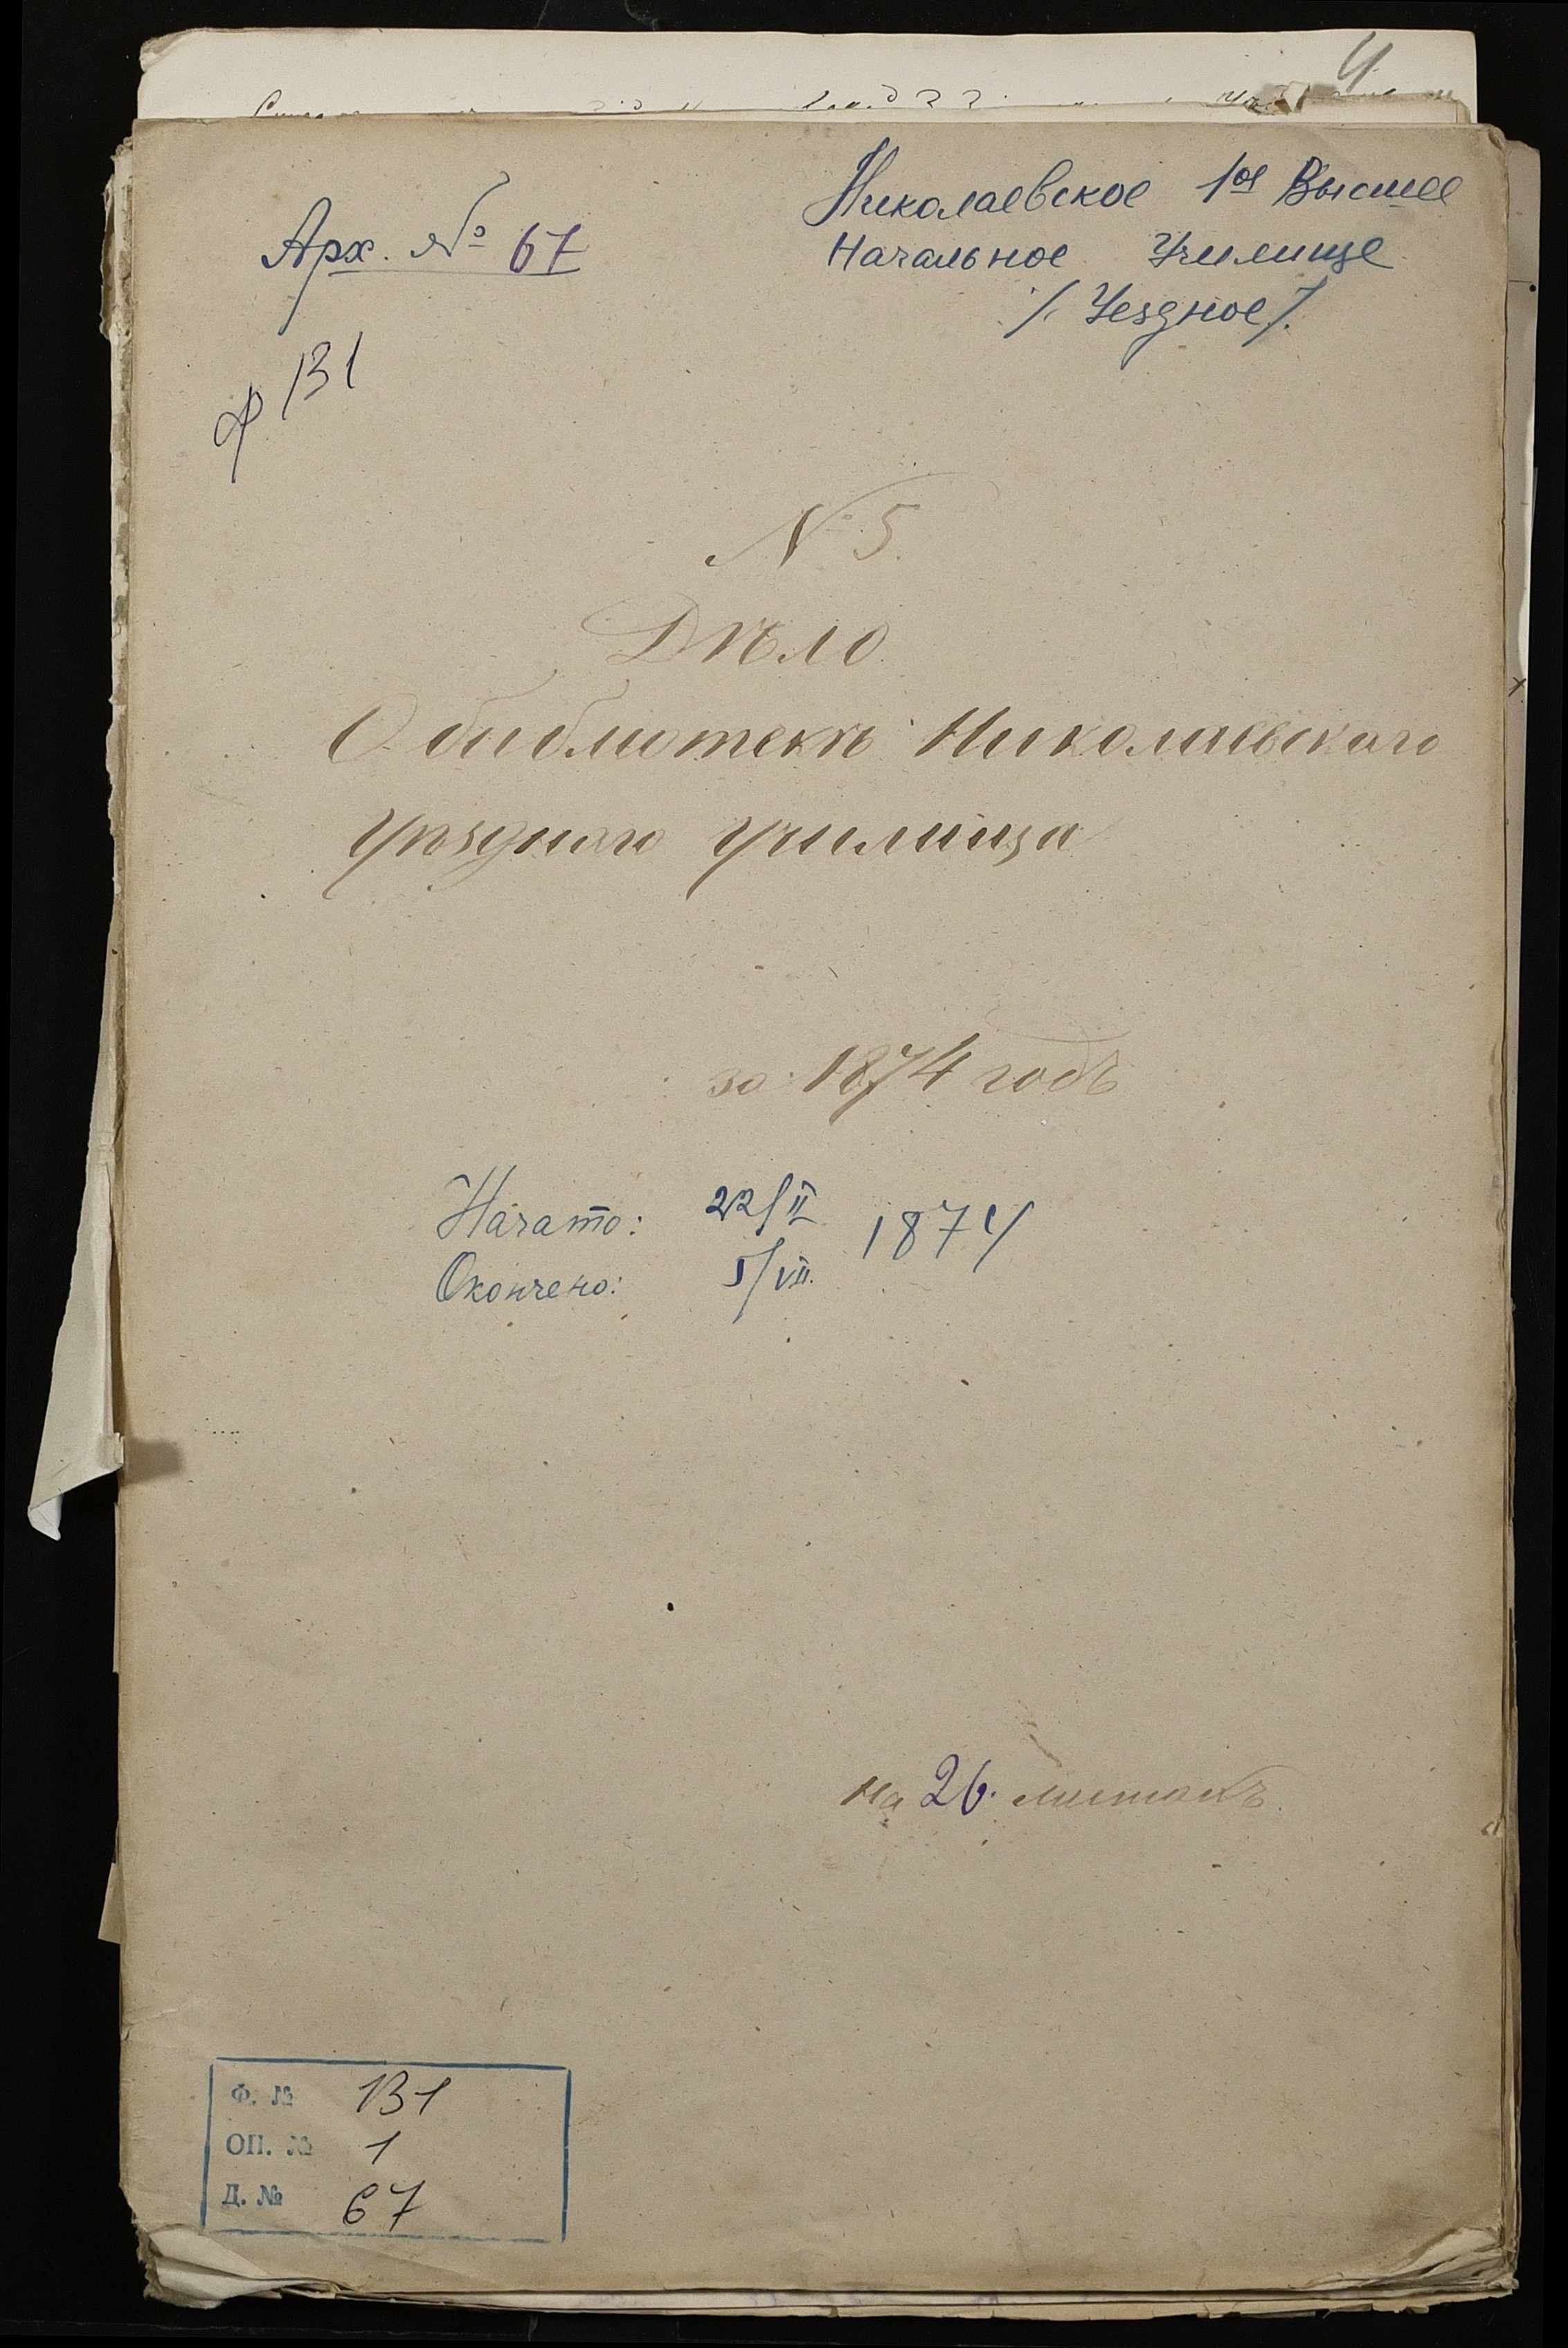 Арх. № 67
Николаевское 1ое Высшее
Начальное Училище
/Уездное/.
ф 131
№ 5.
Дѣло
О библіотекѣ Николаевскаго
Уѣзднаго училища
за 1874 годъ
Начато: 22/II 1874
Окончено: 5/VII.
на 26. листахъ.
Ф. № 131
ОП. № 1
Д. № 67